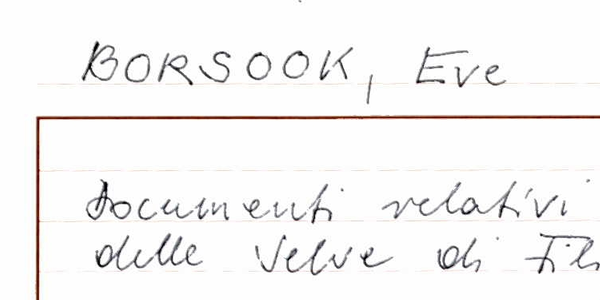 BORSOOK, Eve
Documenti relativi
delle Selve di Fili